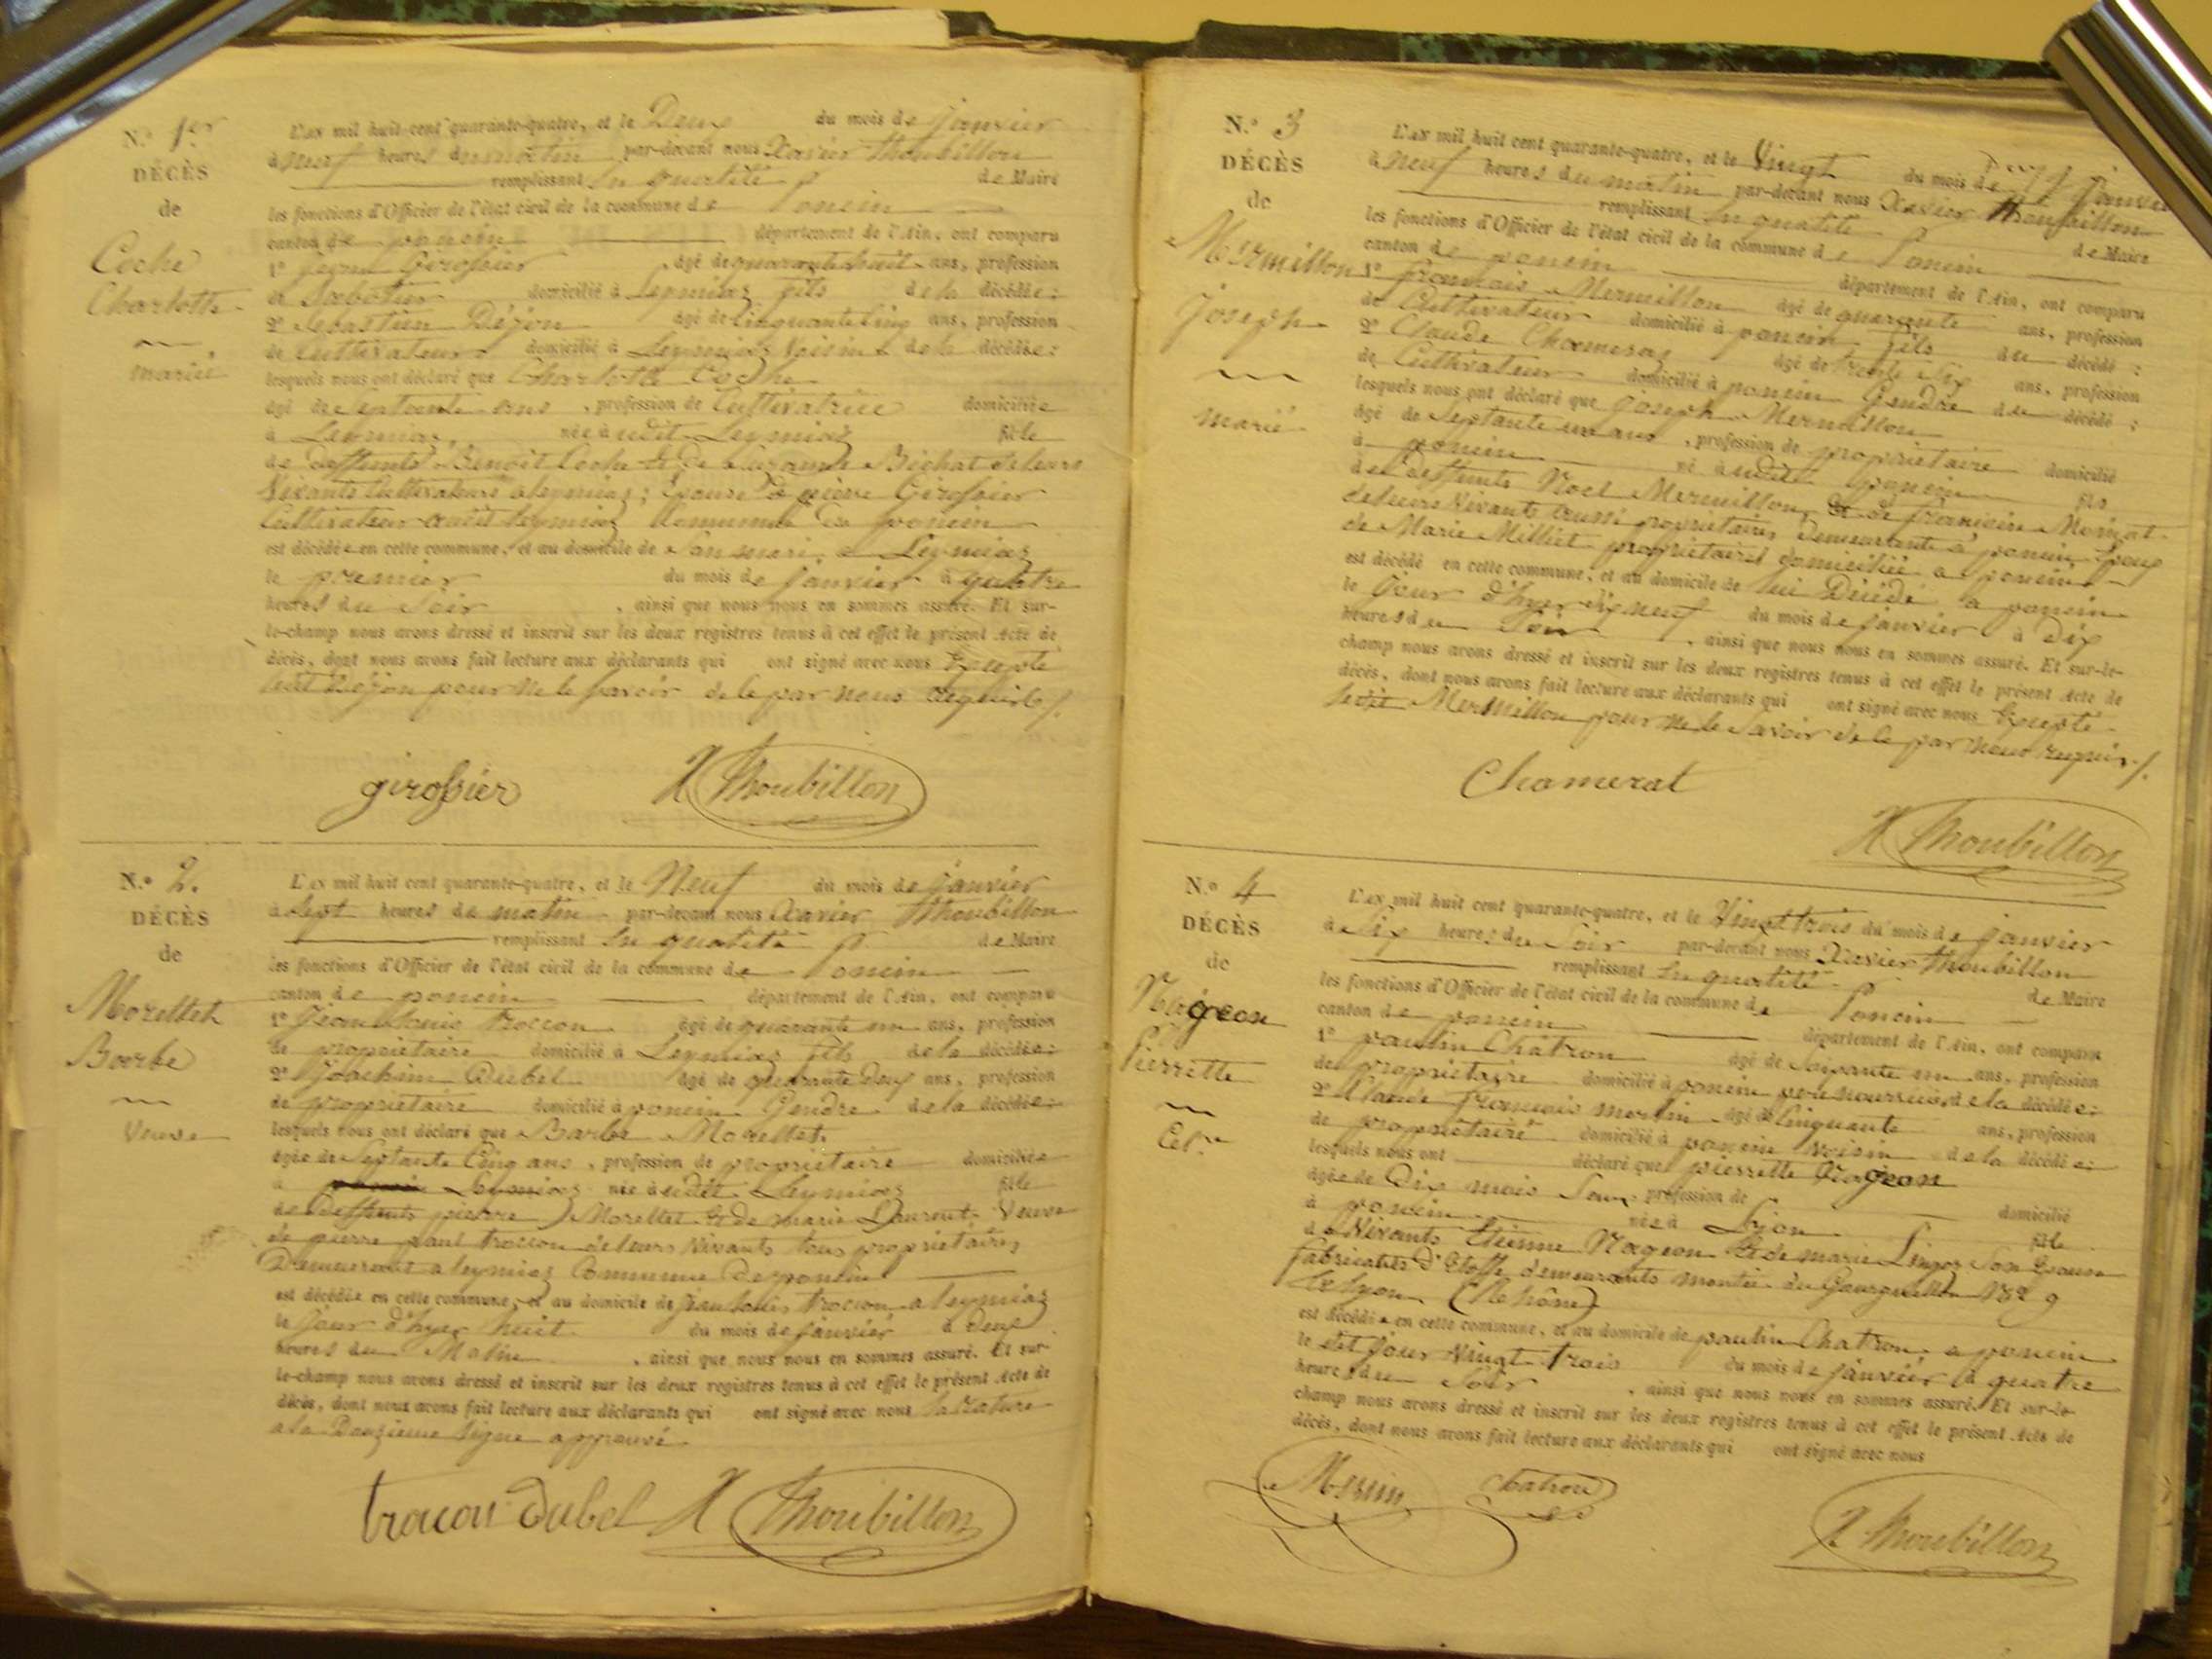 N.o 1er
DÉCÈS
de
Coche
Charlotte
mariée
L'an mil huit cent quarante-quatre, et le Deux du mois de janvier
à neuf heures du matin par-devant nous Xavier Thoubillon
remplissant en qualité de Maire
les fonctions d'Officier de l'état civil de la commune de Poncin
canton de poncin département de l'Ain, ont comparu
1o jean Girossier, âgé de quarante huit ans, profession
de Sabotier domicilié à Leymiaz fils de la décédée:
2o Sebastien Déjon âgé de cinquante cinq ans, profession
de Cultivateur domicilié à Leymiaz Voisin de la décédée:
lesquels nous ont déclaré que Charlotte Coche
âgé de Septante ans, profession de Cultivatrice domiciliée
à Leymiaz, née audit Leymiaz fille
de deffunts Benoit Coche et de Suzanne Bichat de leurs
Vivants Cultivateurs a leymiaz; Epouse de pierre Girossier
Cultivateur audit leymiaz Commune de poncin
est décédée en cette commune, et au domicile de Son mari, a Leymiaz
le premier du mois de janvier à quatre
heures du Soir, ainsi que nous nous en sommes assuré. Et sur-
le-champ nous avons dressé et inscrit sur les deux registres tenus à cet effet le présent Acte de
décès, dont nous avons fait lecture aux déclarants qui ont signé avec nous Excepté
ledit Déjon pour ne le savoir de le par nous requis /.
girossier X Thoubillon
N.o 2.
DÉCÈS
de
Morellet
Barbe
Veuve
L'an mil huit cent quarante-quatre, et le Neuf du mois de janvier
à Sept heures du matin par-devant nous Xavier Thoubillon
remplissant en qualité de Maire
les fonctions d'Officier de l'état civil de la commune de Poncin
canton de poncin département de l'Ain, ont comparu
1o Jean Louis troccon âgé de quarante un ans, profession
de propriétaire domicilié à Leymiaz fils de la décédée:
2o Joachim Dubel âgé de quarante deux ans, profession
de propriétaire domicilié à poncin Gendre de la décédée:
lesquels nous ont déclaré que Barbe Morellet
âgée de Septante Cinq ans, profession de propriétaire domiciliée
à Leymiaz née audit Leymiaz fille
de Deffunts pierre Morellet et de marie Laurent Veuve
de pierre paul troccon de leurs Vivants tous propriétaires
Demeurant a leymiaz Commune de poncin
est décédée en cette commune, et au domicile de jean Louis troccon a leymiaz
le jour d'hyer huit du mois de janvier à Deux
heures du Matin, ainsi que nous nous en sommes assuré. Et sur-
le-champ nous avons dressé et inscrit sur les deux registres tenus à cet effet le présent Acte de
décès, dont nous avons fait lecture aux déclarants qui ont signé avec nous la rature
a la Douzieme ligne approuvé
trocon Dubel X Thoubillon
N.o 3
DÉCÈS
de
Mermillon
Joseph
marié
L'an mil huit cent quarante-quatre, et le Vingt du mois de janvier
à neuf heures du matin par-devant nous Xavier Thoubillon
remplissant en qualité de Maire
les fonctions d'Officier de l'état civil de la commune de Poncin
canton de poncin département de l'Ain, ont comparu
1o françois Mermillon âgé de quarante ans, profession
de Cultivateur domicilié à poncin fils du décédé:
2o Claude Chamerat âgé de trente Six ans, profession
de Cultivateur domicilié à poncin Gendre du décédé:
lesquels nous ont déclaré que joseph Mermillon
âgé de Septante un ans, profession de propriétaire domicilié
à poncin né audit poncin fils
de deffunts Noel Mermillon, et de françoise Monnat
de leurs Vivants aussi propriétaires Demeurants a poncin Epoux
de Marie Milliet propriétaires domiciliée a poncin
est décédé en cette commune, et au domicile de lui Décédé a poncin
le jour d'hyer dix neuf du mois de janvier à Dix
heures du Soir, ainsi que nous nous en sommes assuré. Et sur-le-
champ nous avons dressé et inscrit sur les deux registres tenus à cet effet le présent Acte de
décès, dont nous avons fait lecture aux déclarants qui ont signé avec nous Excepté
ledit Mermillon pour ne le Savoir de le par nous requis /.
Chamerat
X Thoubillon
N.o 4
DÉCÈS
de
Nageon
Pierrette
Cel.re
L'an mil huit cent quarante-quatre, et le Vingt trois du mois de janvier
à Six heures du Soir par-devant nous Xavier Thoubillon
remplissant en qualité de Maire
les fonctions d'Officier de l'état civil de la commune de Poncin
canton de poncin département de l'Ain, ont comparu
1o paulin Chatron âgé de Soixante un ans, profession
de propriétaire domicilié à poncin père nourricier de la décédée:
2o Claude françois merlin âgé de Cinquante ans, profession
de propriétaire domicilié à poncin Voisin de la décédée:
lesquels nous ont déclaré que pierrette Nageon
âgée de Dix mois Sans profession de domicilié
à poncin née à Lyon fille
de Vivants Etienne Nageon et de marie Son Epouse
fabricants d'Etoffe demeurants montée du Gourguillon No 9
a Lyon (Rhône)
est décédée en cette commune, et au domicile de paulin Chatron a poncin
le dit jour Vingt trois du mois de janvier à quatre
heures du Soir, ainsi que nous nous en sommes assuré. Et sur-le-
champ nous avons dressé et inscrit sur les deux registres tenus à cet effet le présent Acte de
décès, dont nous avons fait lecture aux déclarants qui ont signé avec nous
Chatron
X Thoubillon